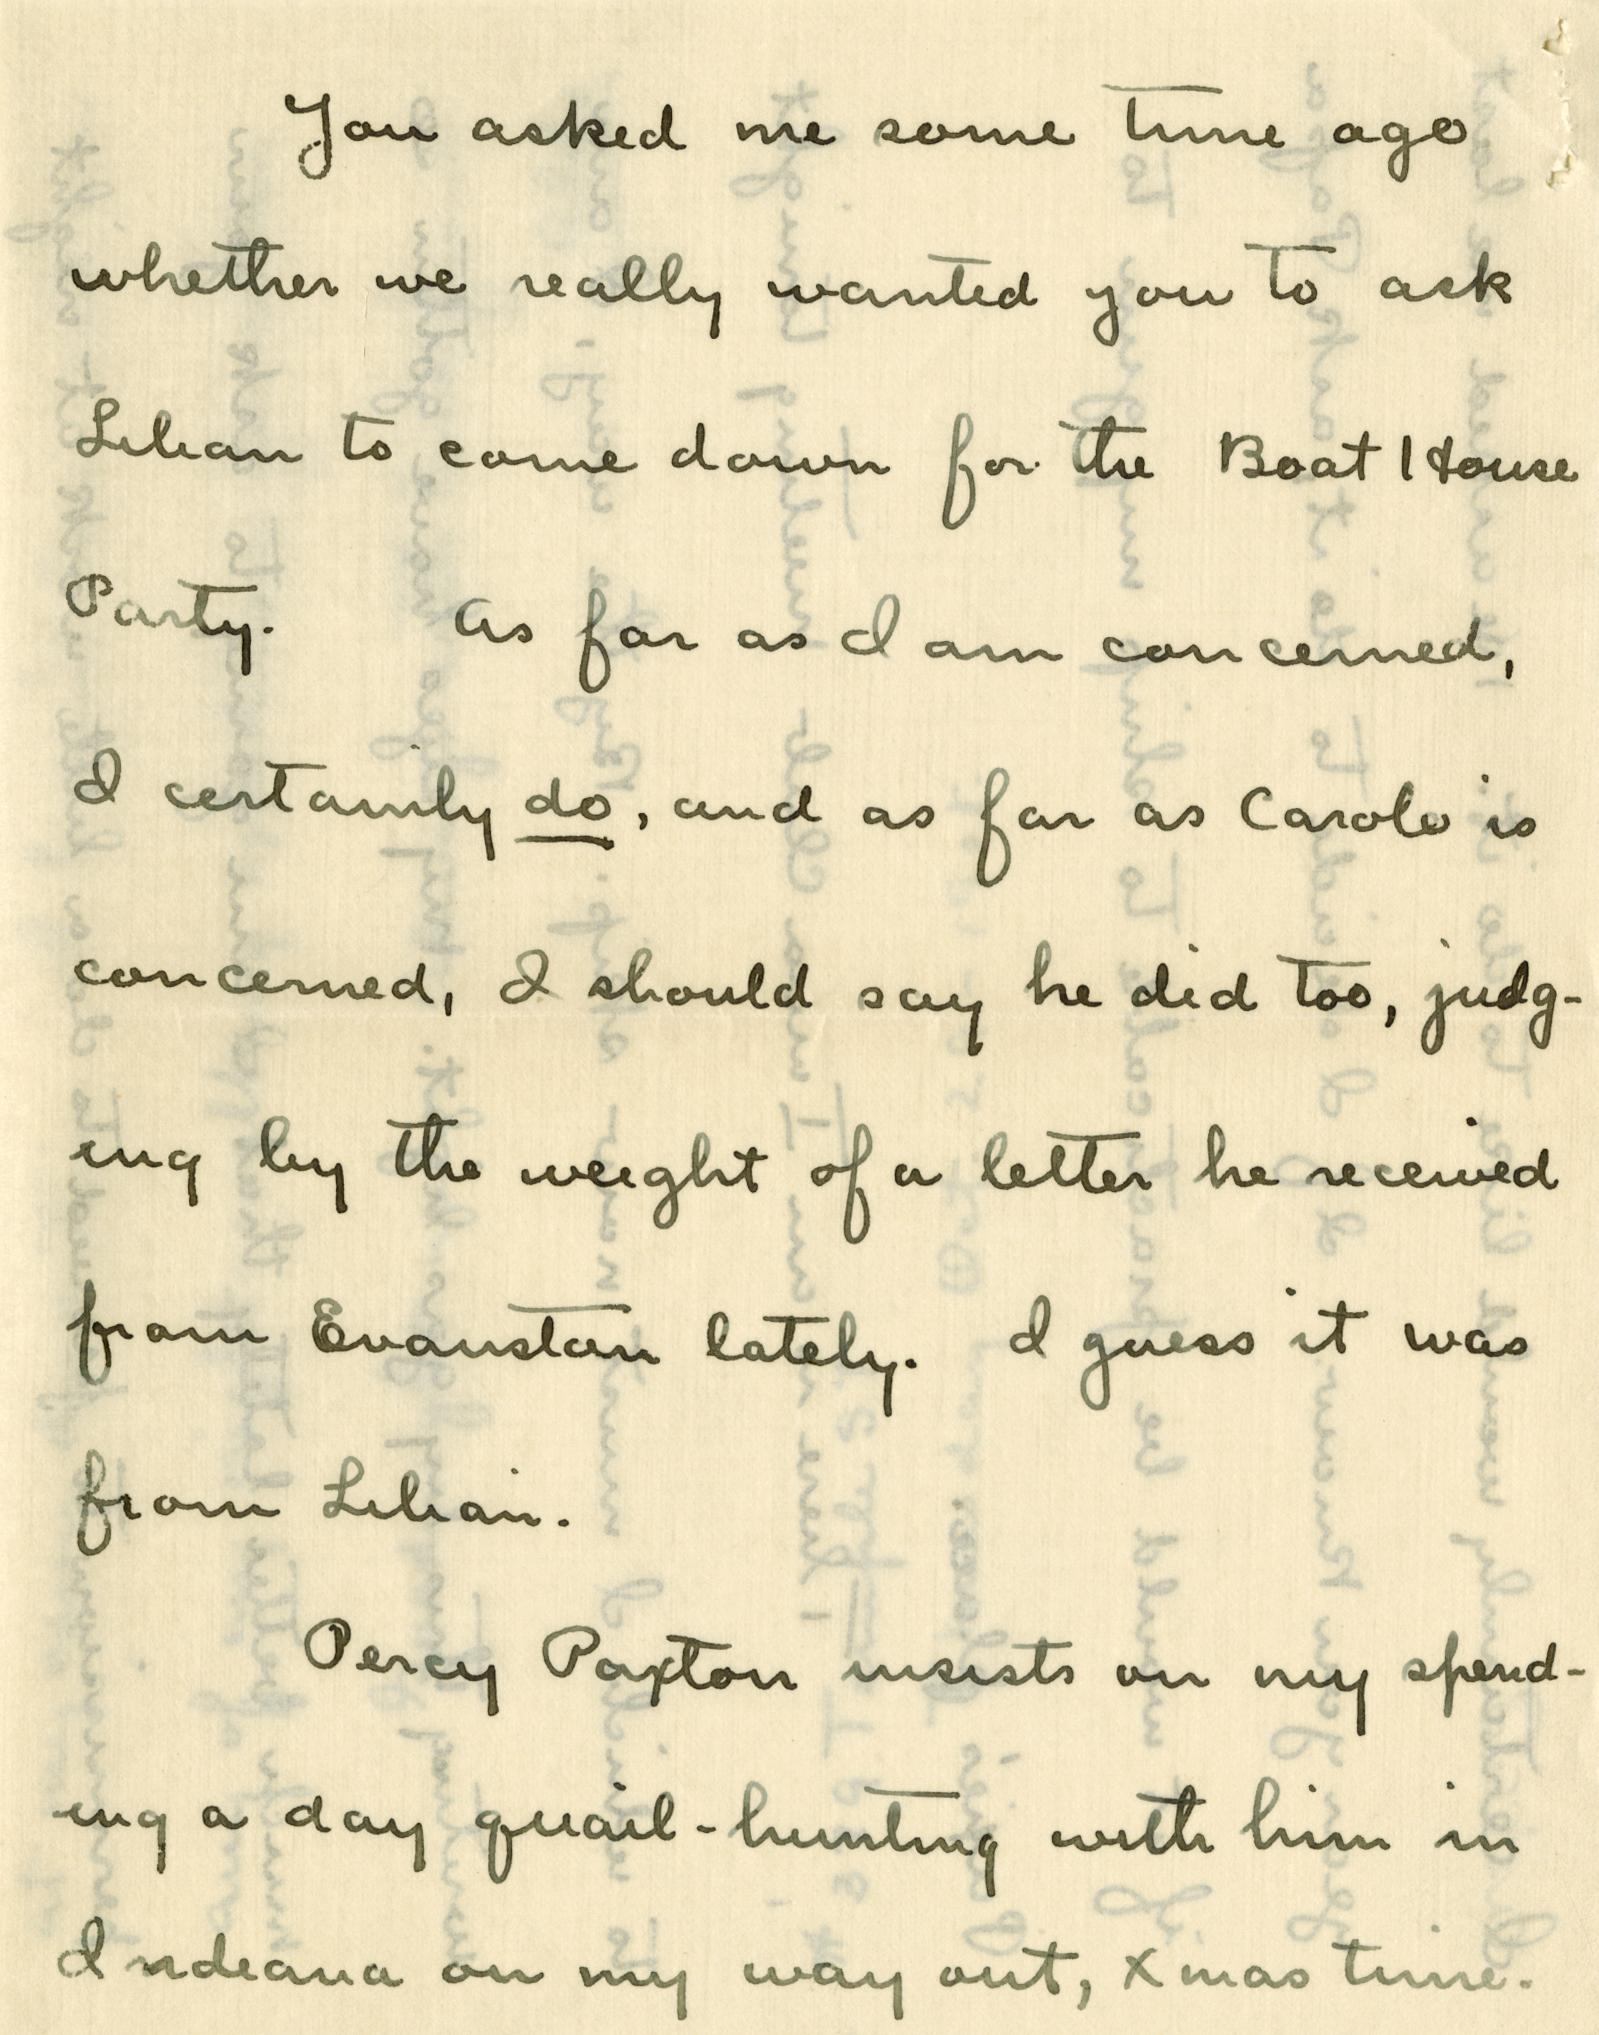 You asked me some time ago
whether we really wanted you to ask
Lilian to come down for the Boat House
Party. As far as I am concerned,
I certainly do, and as far as Carolo is
concerned, I should say he did too, judg-
ing by the weight of a letter he received
from Evanston lately. I guess it was
from Lilian.
Percy Paxton insists on my spend-
ing a day quail-hunting with him in
Indiana on my way out, Xmas time.